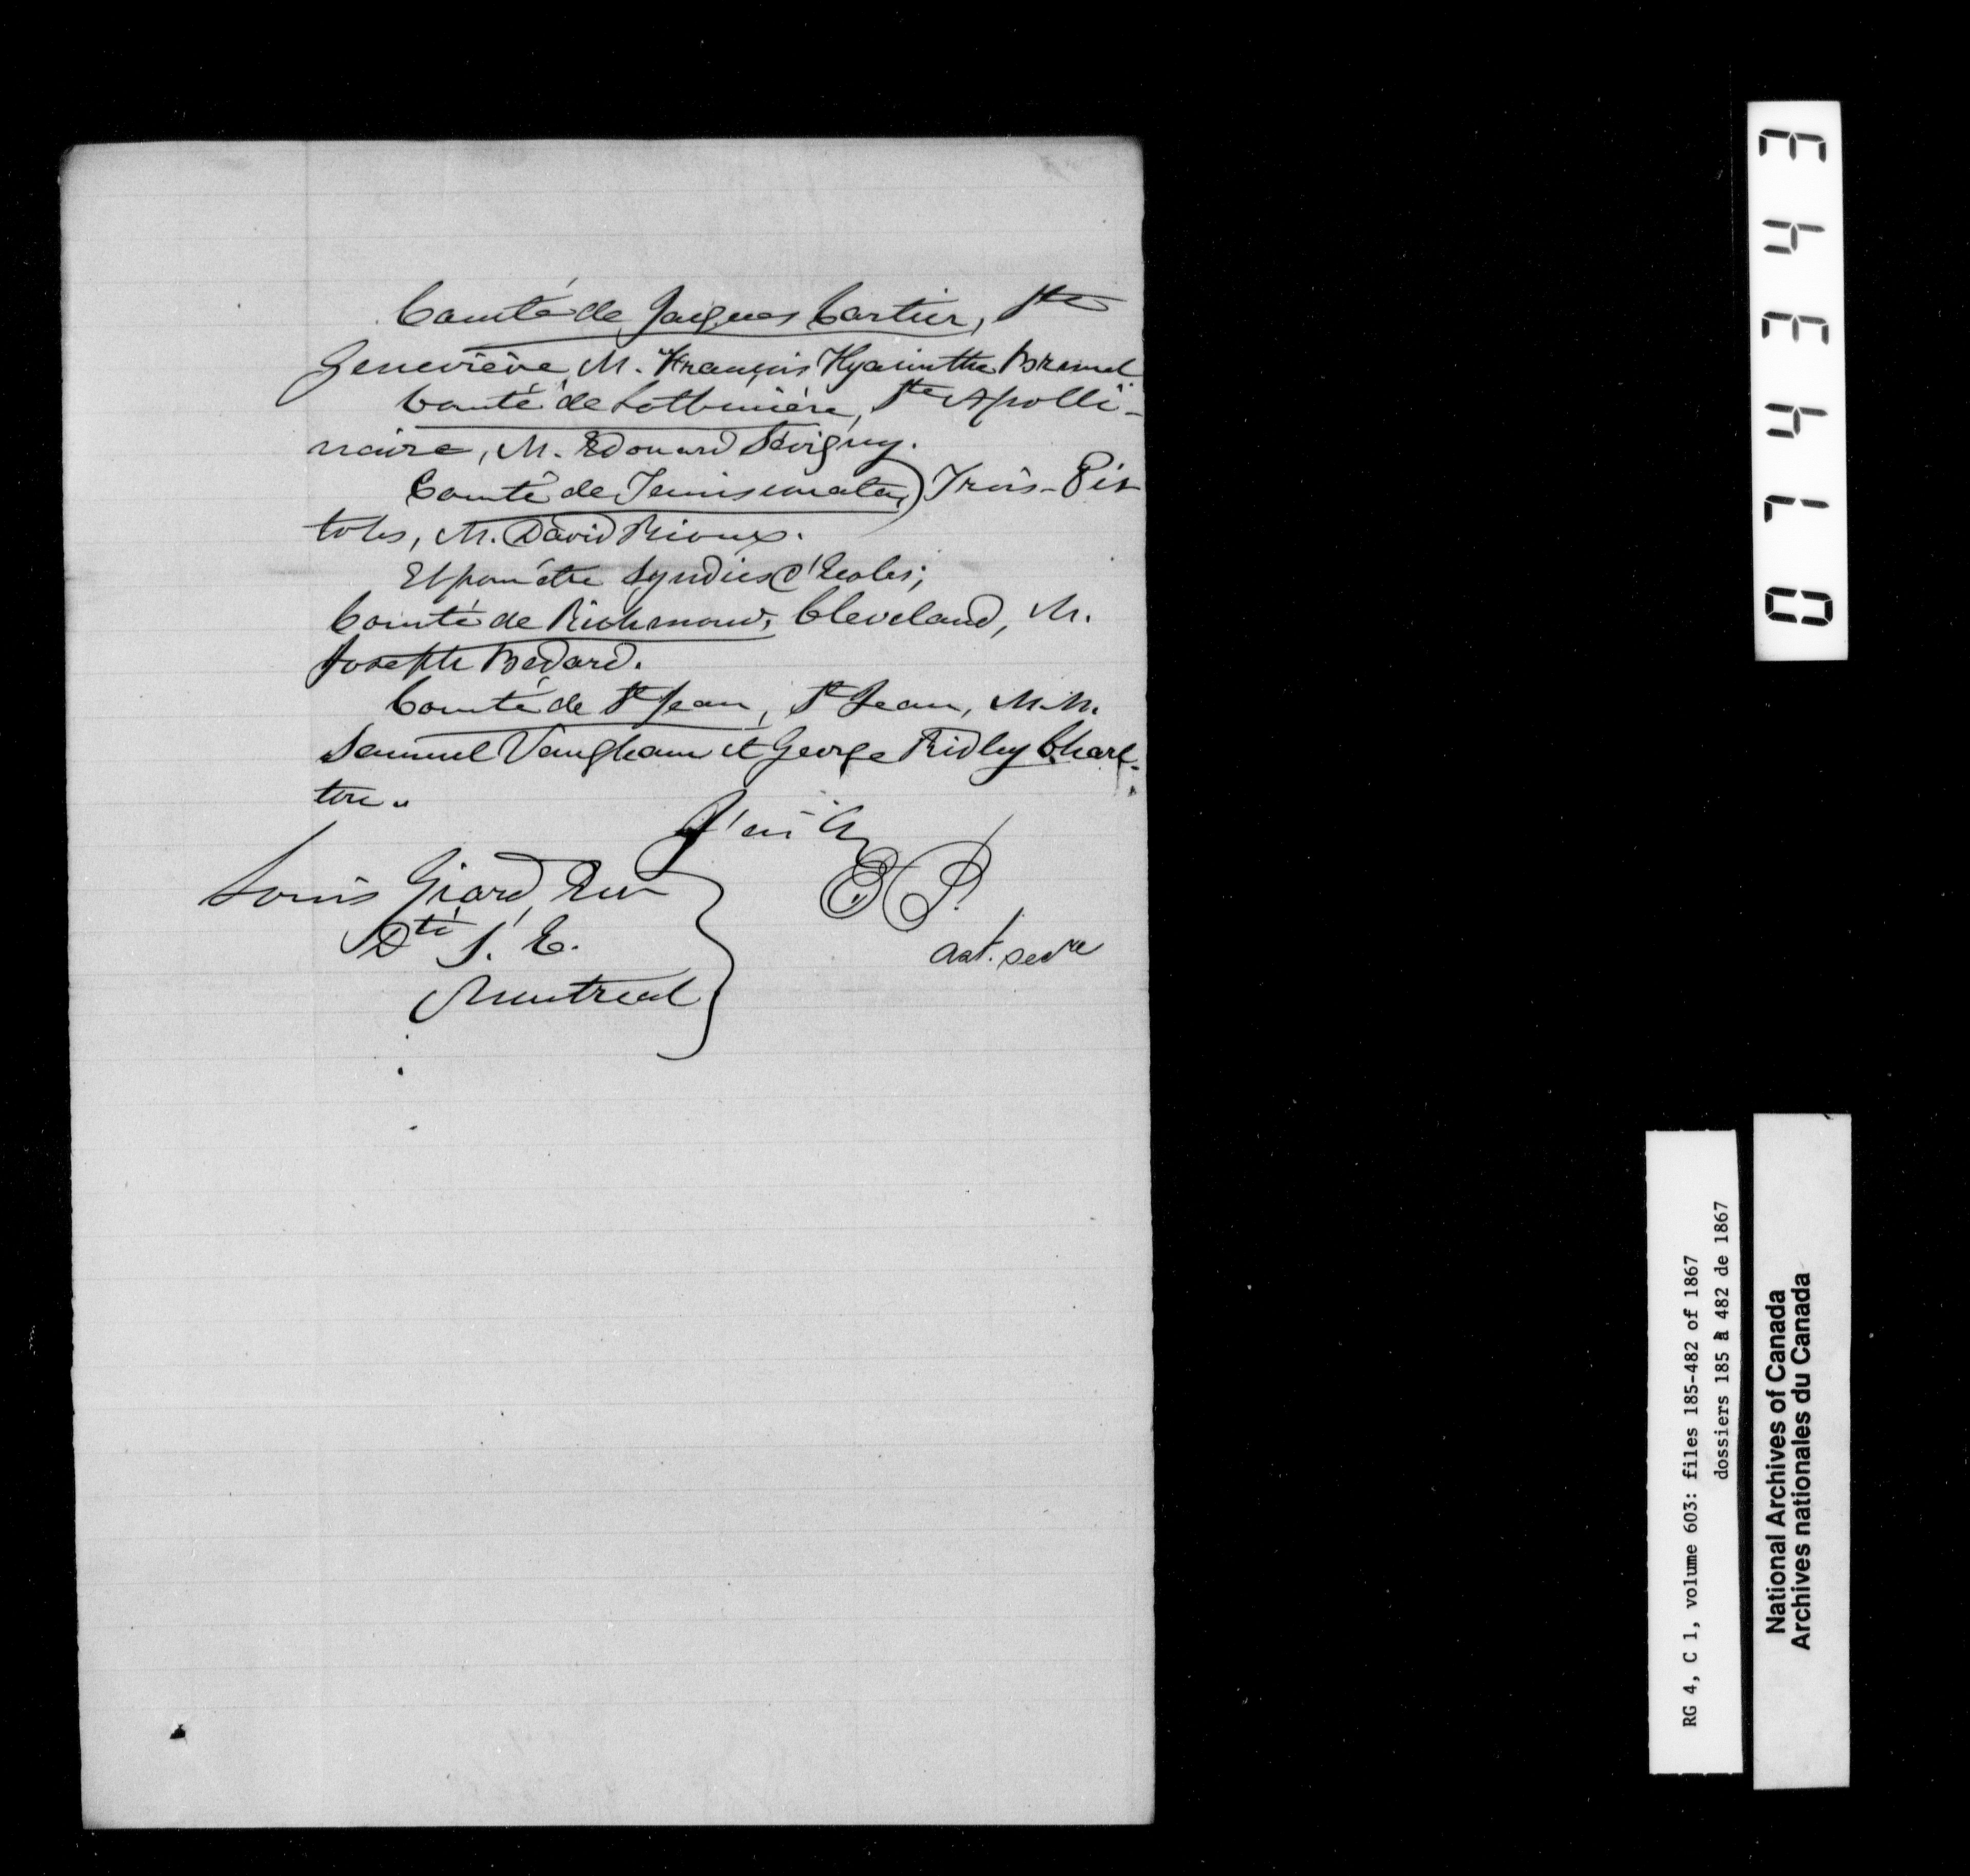 Comté de Jacques Cartier, Ste
Geneviève, M. François Hyacinthe Brunet
Comté de Lotbinière, Ste Apolli-
naire, M. Edouard Sévigny.
Comté de Temiscouata, Trois-Pis
toles, M. David Rioux.
Et pour être Syndics d'Ecoles;
Comté de Richmond, Cleveland, M.
Joseph Bedard.
Comté de St Jean, St Jean, M.M.
Samuel Vaugham et George Ridley Charl-
ton.
J'ai
Louis Giard, Ecr
EP.
D S. E.
Asst. secre
Montreal
34341 0
RG 4, C 1, volume 603: files 185-482 of 1867
dossiers 185 à 482 de 1867
National Archives of Canada
Archives nationales du Canada